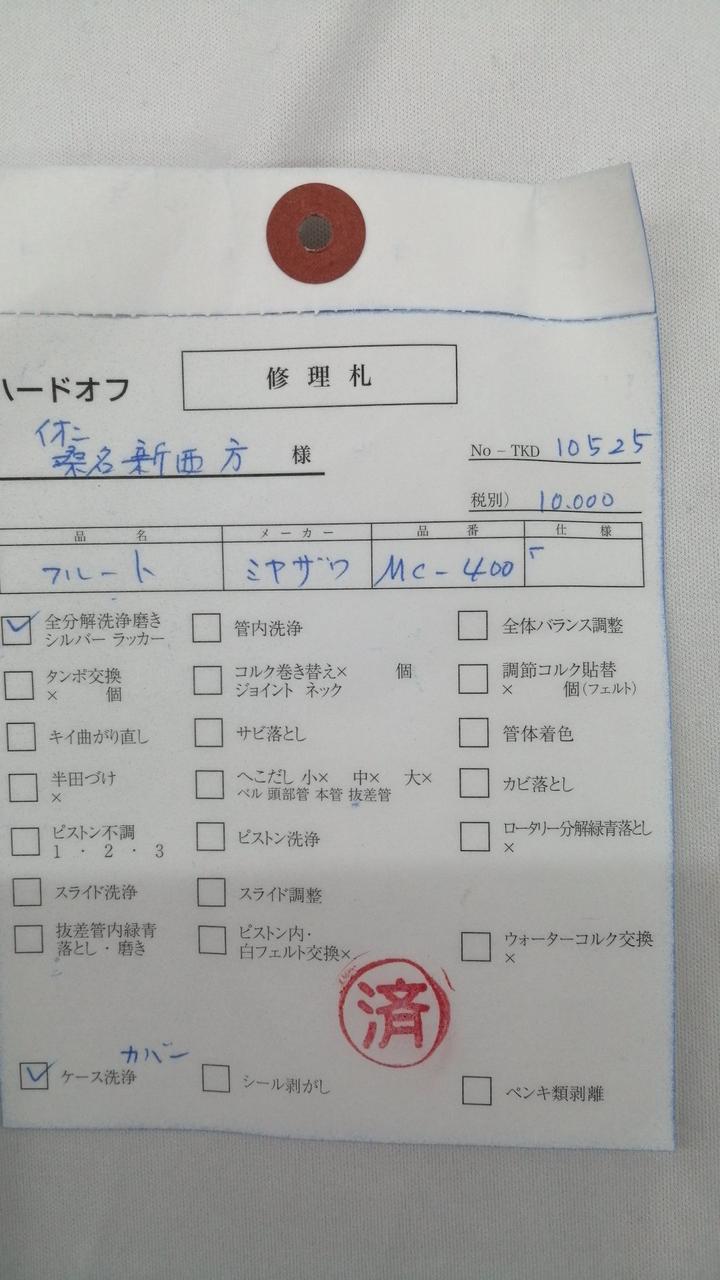 ハードオフ
修理札
イオン
桑名新西方 様
No－TKD 10525
税別） 10.000
品名 メーカー 品番 仕様
フルート ミヤザワ MC－400
全分解洗浄磨き
シルバー ラッカー
管内洗浄
全体バランス調整
タンポ交換
× 個
コルク巻き替え× 個
ジョイント ネック
調節コルク貼替
× 個（フェルト）
キイ曲がり直し
サビ落とし
管体着色
半田づけ
×
へこだし 小× 中× 大×
ベル 頭部管 本管 抜差管
カビ落とし
ピストン不調
1 ・ 2 ・ 3
ピストン洗浄
ロータリー分解緑青落とし
×
スライド洗浄
スライド調整
抜差管内緑青
落とし・磨き
ピストン内・
白フェルト交換×
ウォーターコルク交換
×
済
カバー
ケース洗浄
シール剥がし
ペンキ類剥離